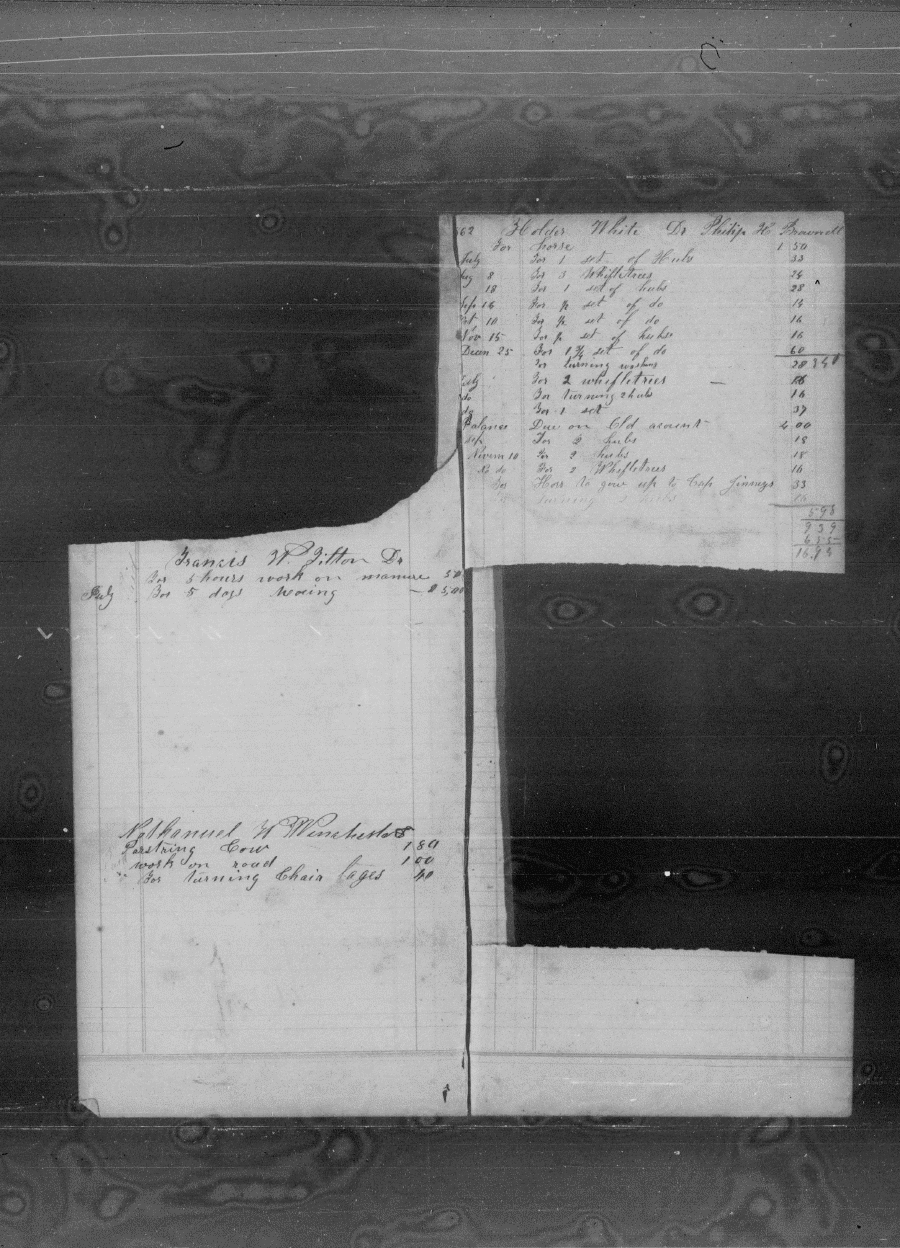 62 Holder White Dr Philip H. Brownell
For horse 1 50
July For 1 set of Hubs 33
Aug 8 For 3 Whifletrees 24
18 For 1 set of hubs 28
Sep 16 For ½ set of do 14
Oct 10 For ½ set of do 16
Nov 15 For ½ set of hubs 16
Decem 25 For 1¾ set of do 60
For turning 28
July For 2 whifletrees — 16
do For turning 2 hubs 16
do For 1 set 37
Balance Due on Old acount 4 00
Sep For 2 hubs 18
Novem 10 For 2 hubs 18
do For 2 Whifletrees 16
For Hors to gow up to Cap 33
turning 2 hubs 16
5 93
9 39
16.93
Francis W. Tilton Dr
For 5 hours work on manure 50
July For 5 days hoeing — $ 5,00
Nathanuel W Winchester
Parstring Cow 1 80
work on road 1 00
For turning Chair lages 40